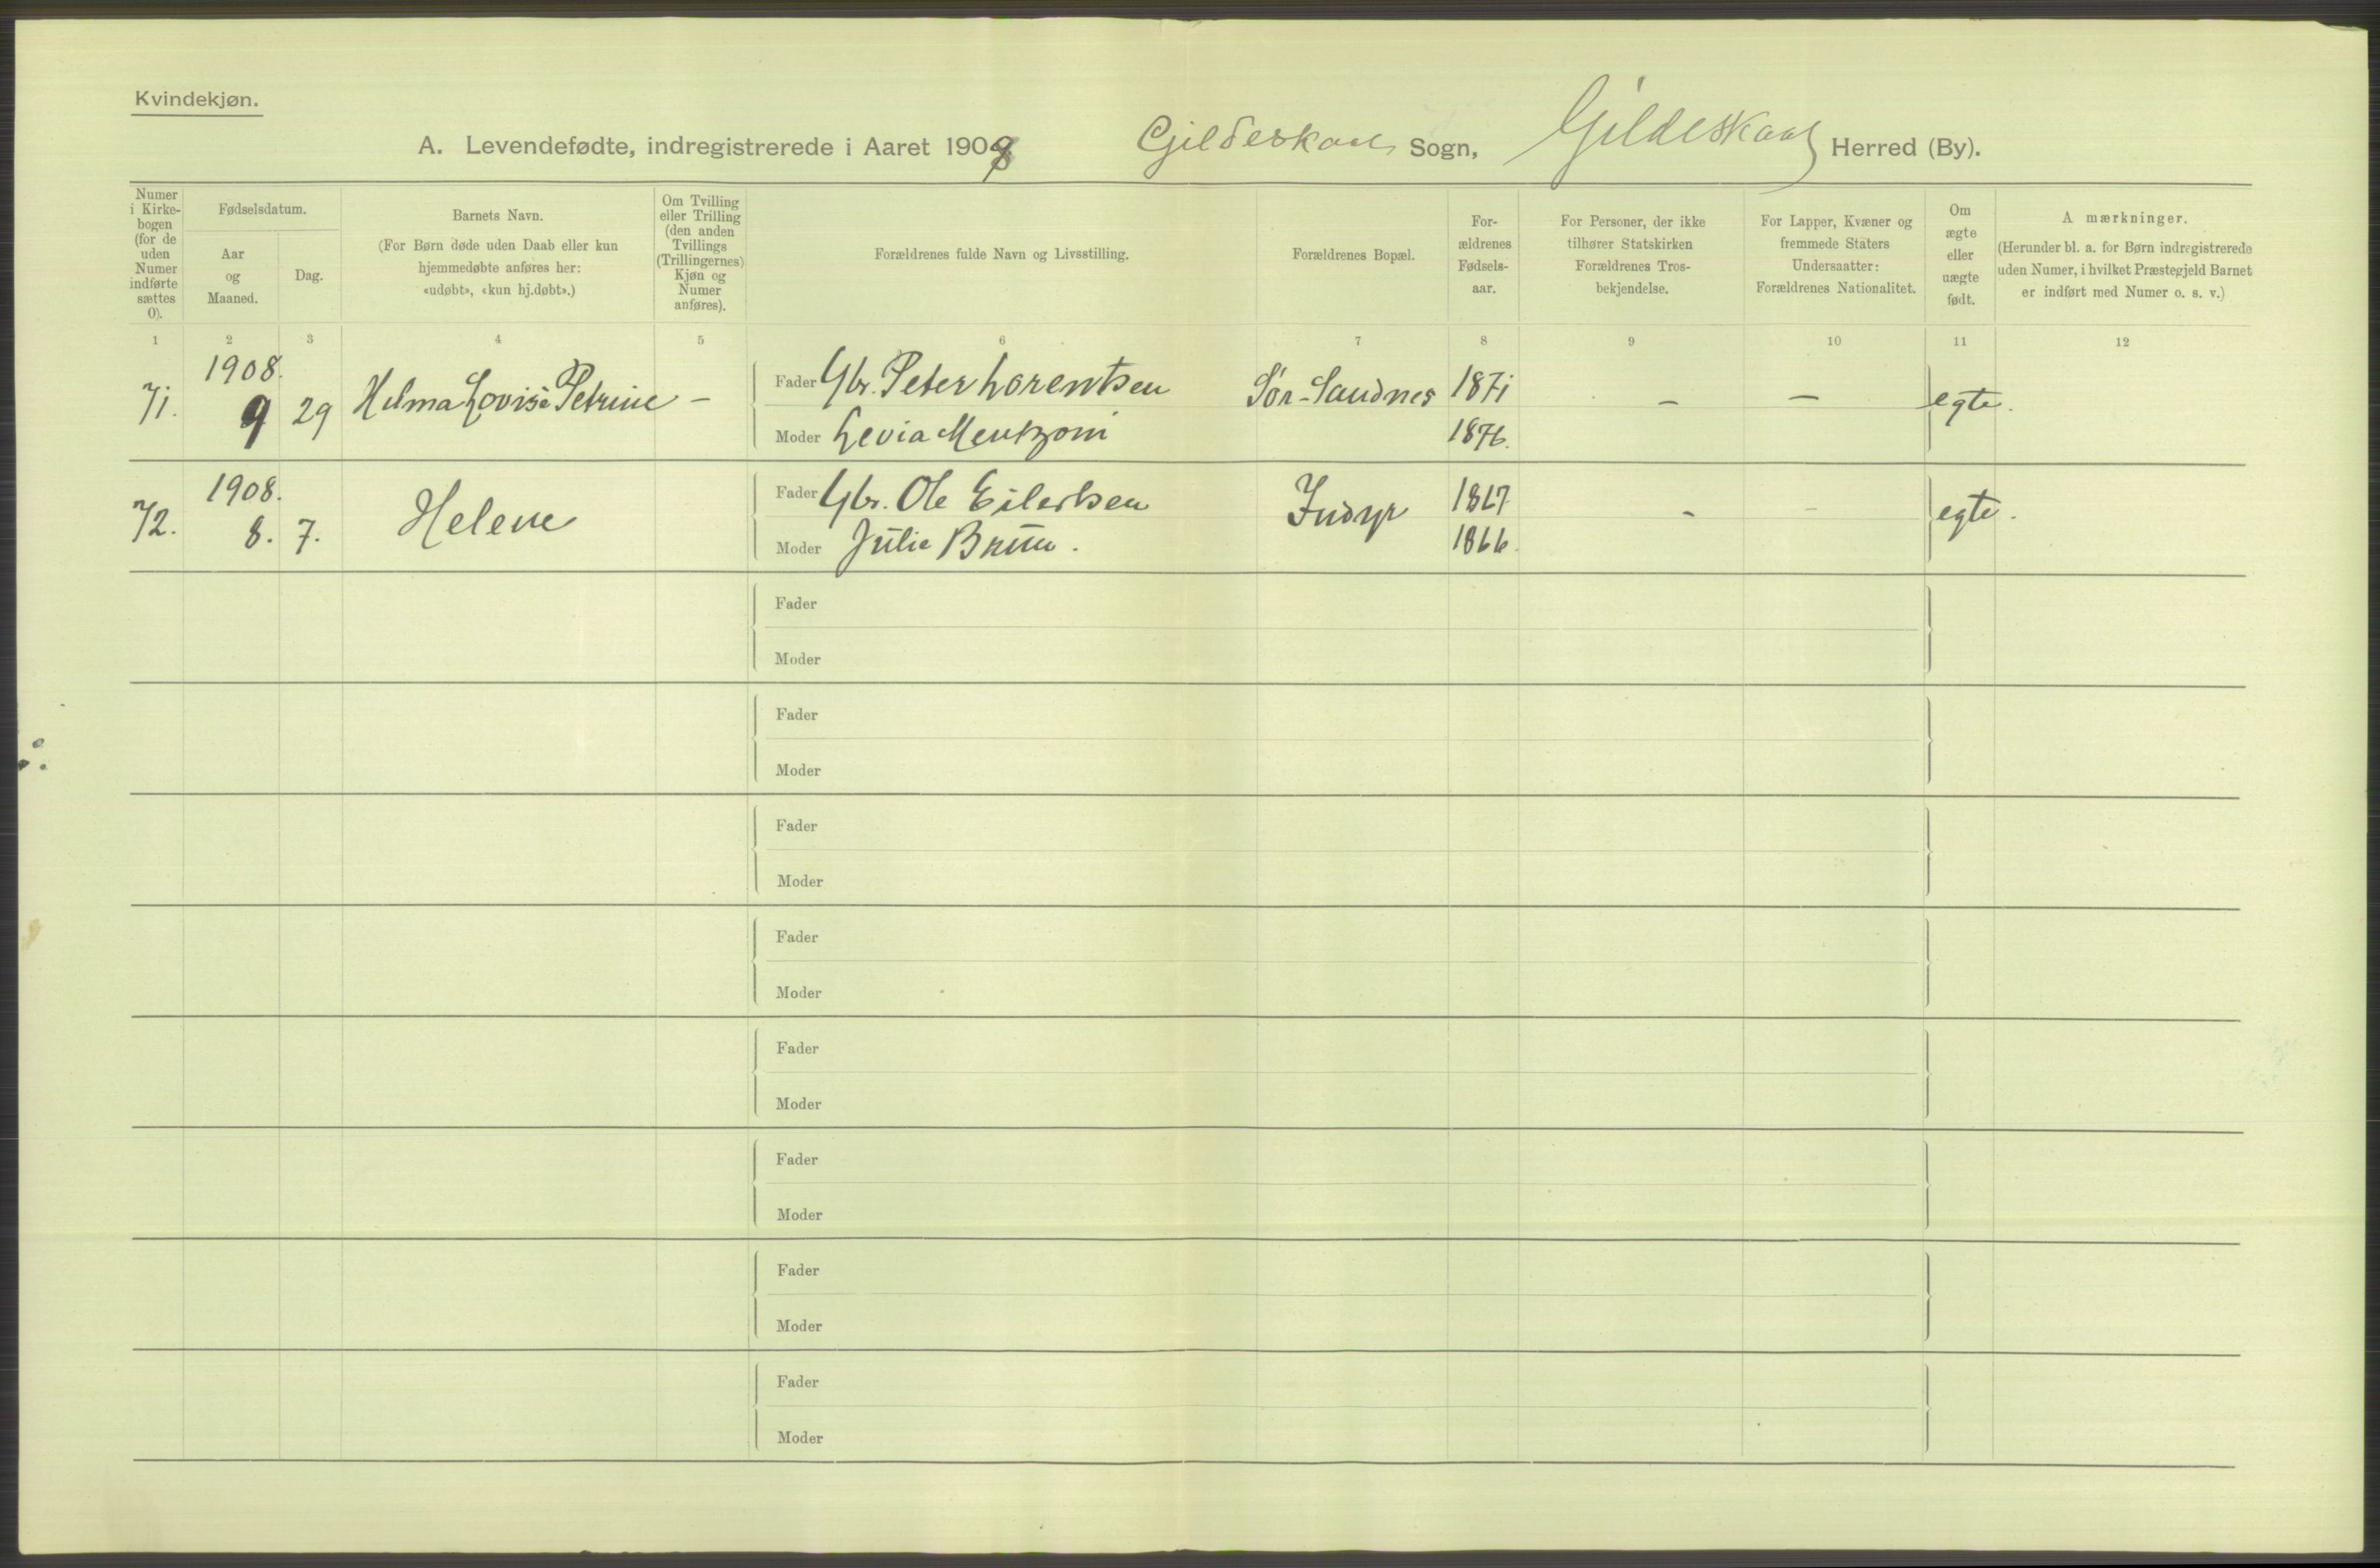 Kvindekjøn.
A. Levendefødte, indregistrerede i Aaret 1908 Gildeskaal Sogn, Gildeskaal Herred (By).
Numer
i Kirke-
bogen
(for de
uden
Numer
indførte
sættes
0).
Fødselsdatum.
Aar
og
Maaned.
Dag.
Barnets Navn.
(For Børn døde uden Daab eller kun
hjemmedøbte anføres her:
«udøbt», «kun hj.døbt».)
Om Tvilling
eller Trilling
(den anden
Tvillings
(Trillingernes)
Kjøn og
Numer
anføres).
Forældrenes fulde Navn og Livsstilling.
Forældrenes Bopæl.
For-
ældrenes
Fødsels-
aar.
For Personer, der ikke
tilhører Statskirken
Forældrenes Tros-
bekjendelse.
For Lapper, Kvæner og
fremmede Staters
Undersaatter:
Forældrenes Nationalitet.
Om
ægte
eller
uægte
født.
A mærkninger.
(Herunder bl. a. for Børn indregistrerede
uden Numer, i hvilket Præstegjeld Barnet
er indført med Numer o. s. v.)
1 2 3 4 5 6 7 8 9 10 11 12
1908.
71. 9 29 Hilma Lovise Petrine –
Fader Gbr. Peter Lorentsen Sør-Sandnes 1871 – – egte.
Moder Levia Mentzoni 1876.
1908.
72. 8. 7. Helene
Fader Gbr. Ole Eilertsen Indyr 1867 - - egte.
Moder Julie Bruun. 1866.
Fader
Moder
Fader
Moder
Fader
Moder
Fader
Moder
Fader
Moder
Fader
Moder
Fader
Moder
Fader
Moder